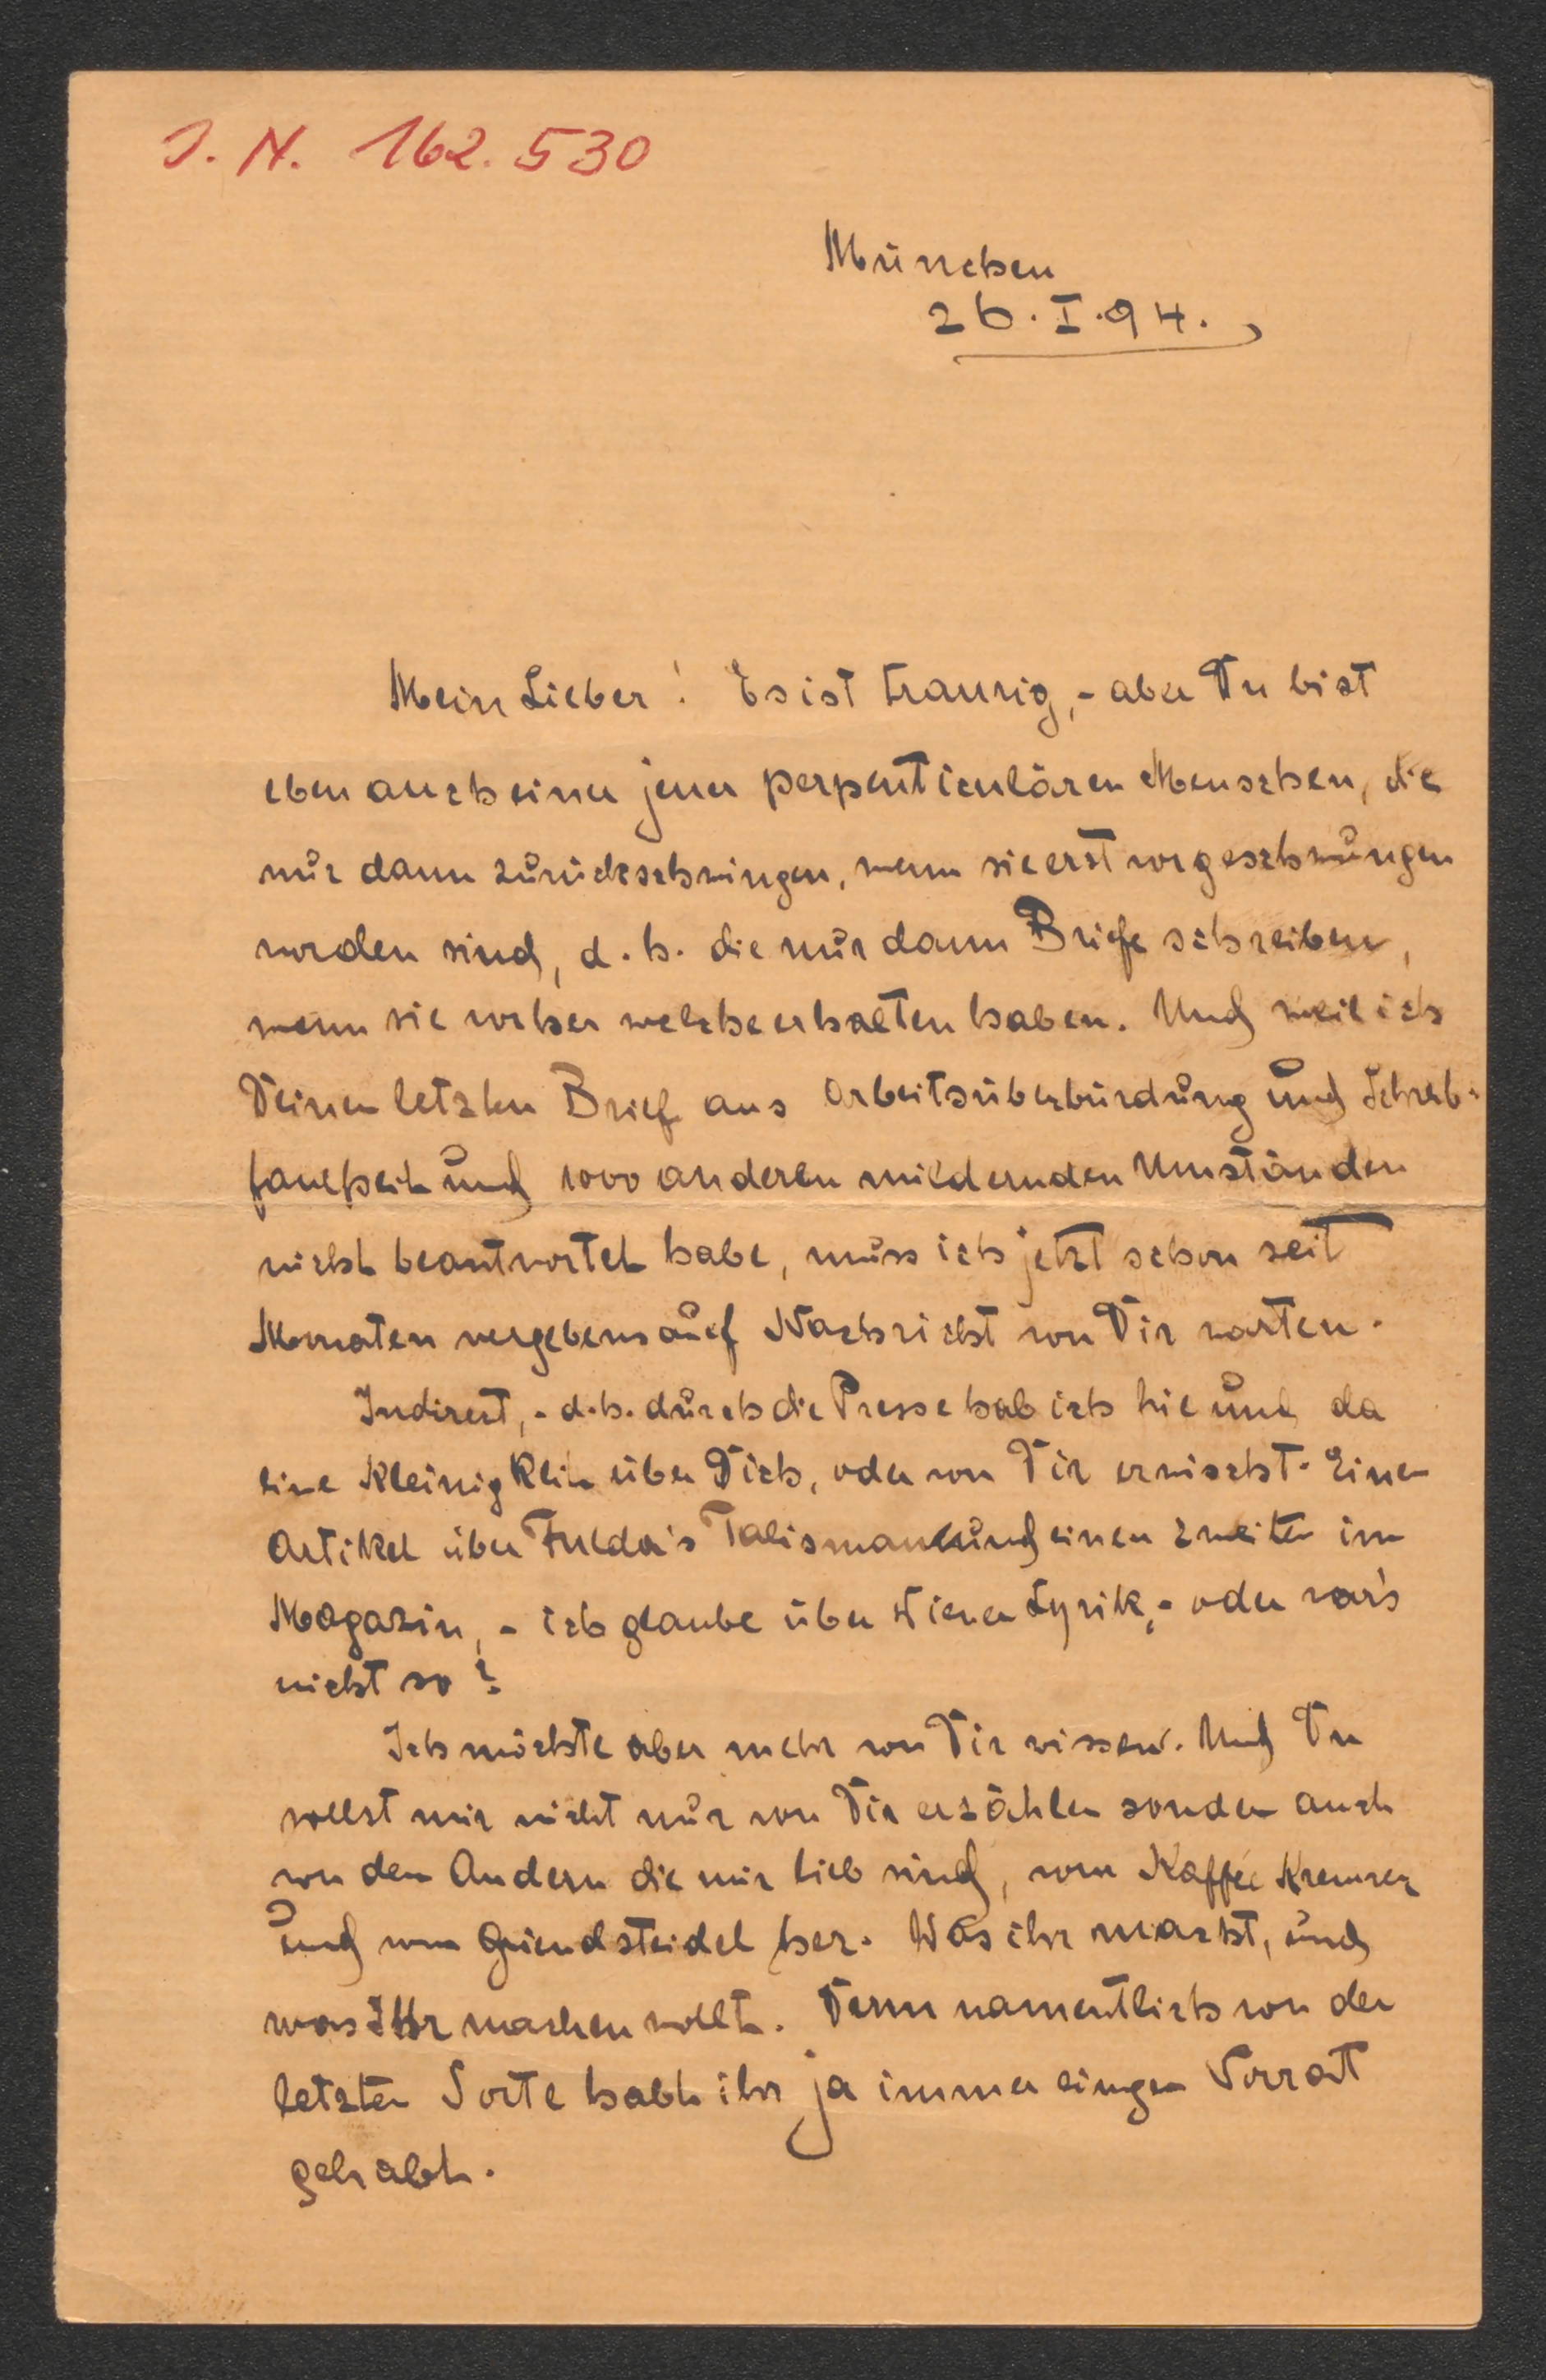 J. N. 162.530
München
26. I. 94.
Mein Lieber! Es ist traurig, - aber Du bist
eben auch einer jener perpentikulären Menschen, die
nur dann zurückschwingen, wenn sie erst vorgeschwungen
worden sind, d. h. die nur dann Briefe schreiben,
wenn sie vorher welche erhalten haben. Und weil ich
Deinen letzten Brief aus Arbeitsüberbürdung und Schreib-
faulheit und 1000 anderen mildernden Umständen
nicht beantwortet habe, muss ich jetzt schon seit
Monaten vergebens auf Nachricht von Dir warten.
Indirect, - d. h. durch die Presse hab ich hie und da
eine Kleinigkeit über Dich, oder von Dir erwischt. Einen
Artikel über Fulda's Talisman und einen zweiten im
Magazin, - ich glaube über Wiener Lyrik, - oder war's
nicht so?
Ich möchte aber mehr von Dir wissen. Und Du
sollst mir nicht nur von Dir erzählen sondern auch
von den Andern die mir lieb sind, vom Kaffée Kremser
und vom Griendsteidel her. Was ihr macht, und
was Ihr machen wollt. Denn namentlich von der
letzten Sorte habt ihr ja immer einigen Vorrat
gehabt.